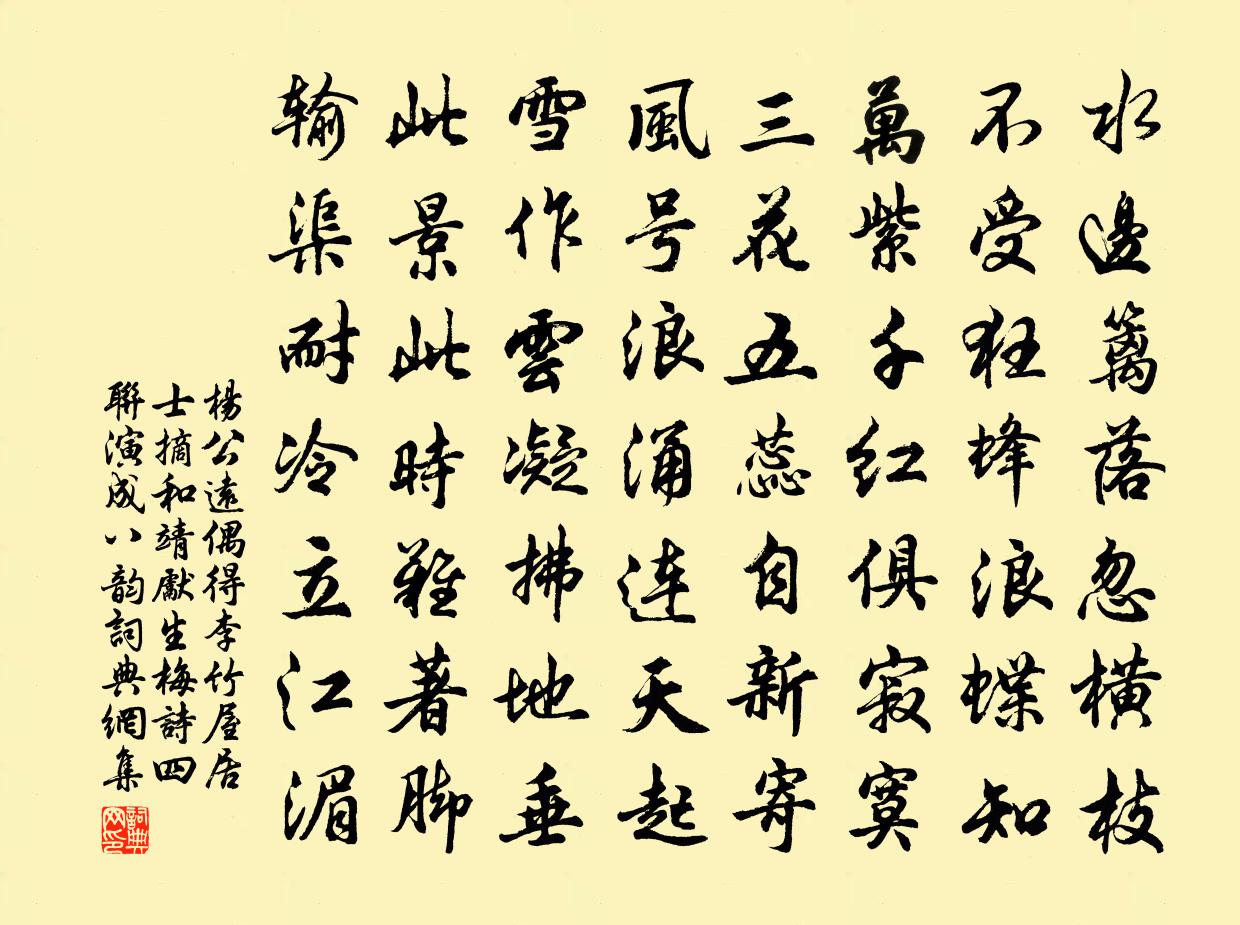 水邊籬落忽橫枝
不受狂蜂浪蝶知
萬紫千紅俱寂寞
三花五蕊自新寄
風号浪涌連天起
雪作雲凝拂地垂
此景此時難著脚
输渠耐冷立江湄
楊公遠偶得李竹屋居
士摘和靖獻生梅詩四
聯演成八韵詞典網集
詞典网印